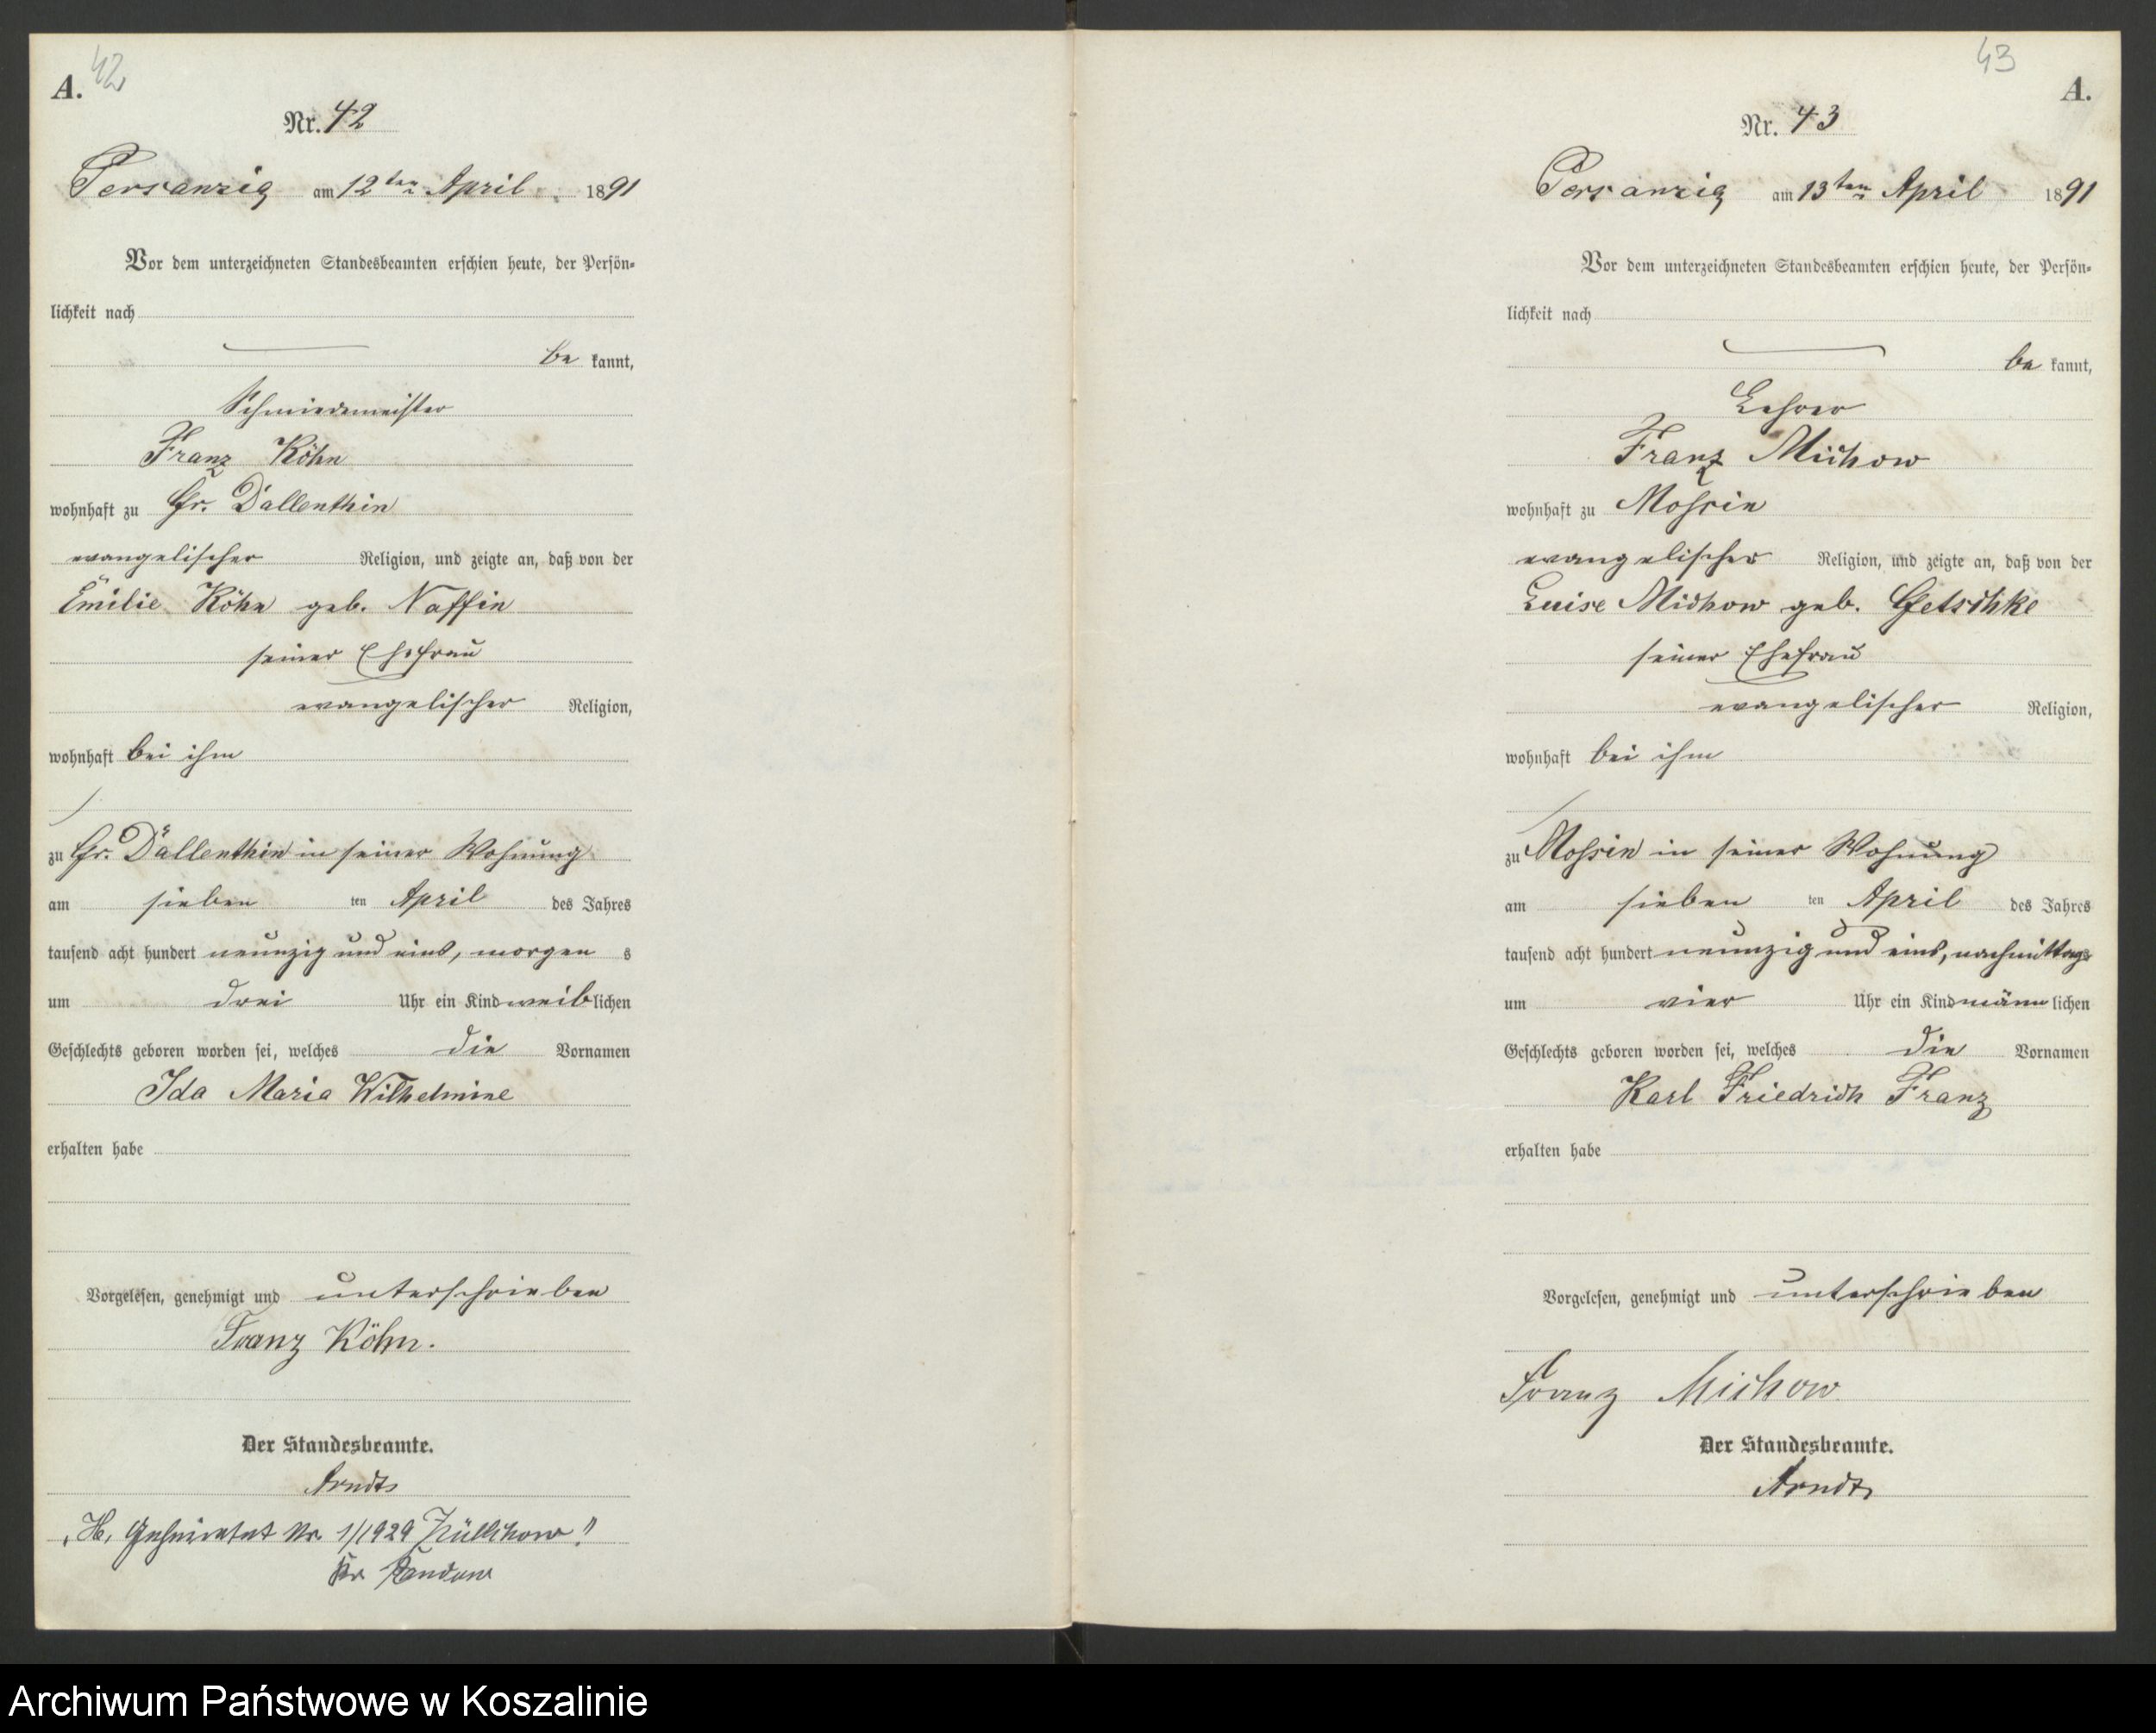 42
A.
Nr. 42
Persanzig am 12ten April 1891
Vor dem unterzeichneten Standesbeamten erschien heute, der Persön-
lichkeit nach
be kannt,
Schmiedemeister
Franz Köhn
wohnhaft zu Gr. Dallenthin
evangelischer Religion, und zeigte an, daß von der
Emilie Köhn geb. Naffin
seiner Ehefrau
evangelischer Religion,
wohnhaft bei ihm
zu Gr. Dallenthin in seiner Wohnung
am sieben ten April des Jahres
tausend acht hundert neunzig und eins, morgen s
um drei Uhr ein Kind weiblichen
Geschlechts geboren worden sei, welches die Vornamen
Ida Maria Wilhelmine
erhalten habe
Vorgelesen, genehmigt und unterschrieben
Franz Köhn.
Der Standesbeamte.
Arndt
"H. Geheiratet Nr. 1/1929 Züllchow"
Kr. Randow
43
A.
Nr. 43
Persanzig am 13ten April 1891
Vor dem unterzeichneten Standesbeamten erschien heute, der Persön-
lichkeit nach
be kannt,
Lehrer
Franz Michow
wohnhaft zu Mossin
evangelischer Religion, und zeigte an, daß von der
Luise Michow geb. Getschke
seiner Ehefrau
evangelischer Religion,
wohnhaft bei ihm
zu Mossin in seiner Wohnung
am sieben ten April des Jahres
tausend acht hundert neunzig und eins, nachmittags
um vier Uhr ein Kind männlichen
Geschlechts geboren worden sei, welches die Vornamen
Karl Friedrich Franz
erhalten habe
Vorgelesen, genehmigt und unterschrieben
Franz Michow
Der Standesbeamte.
Arndt
Archiwum Państwowe w Koszalinie